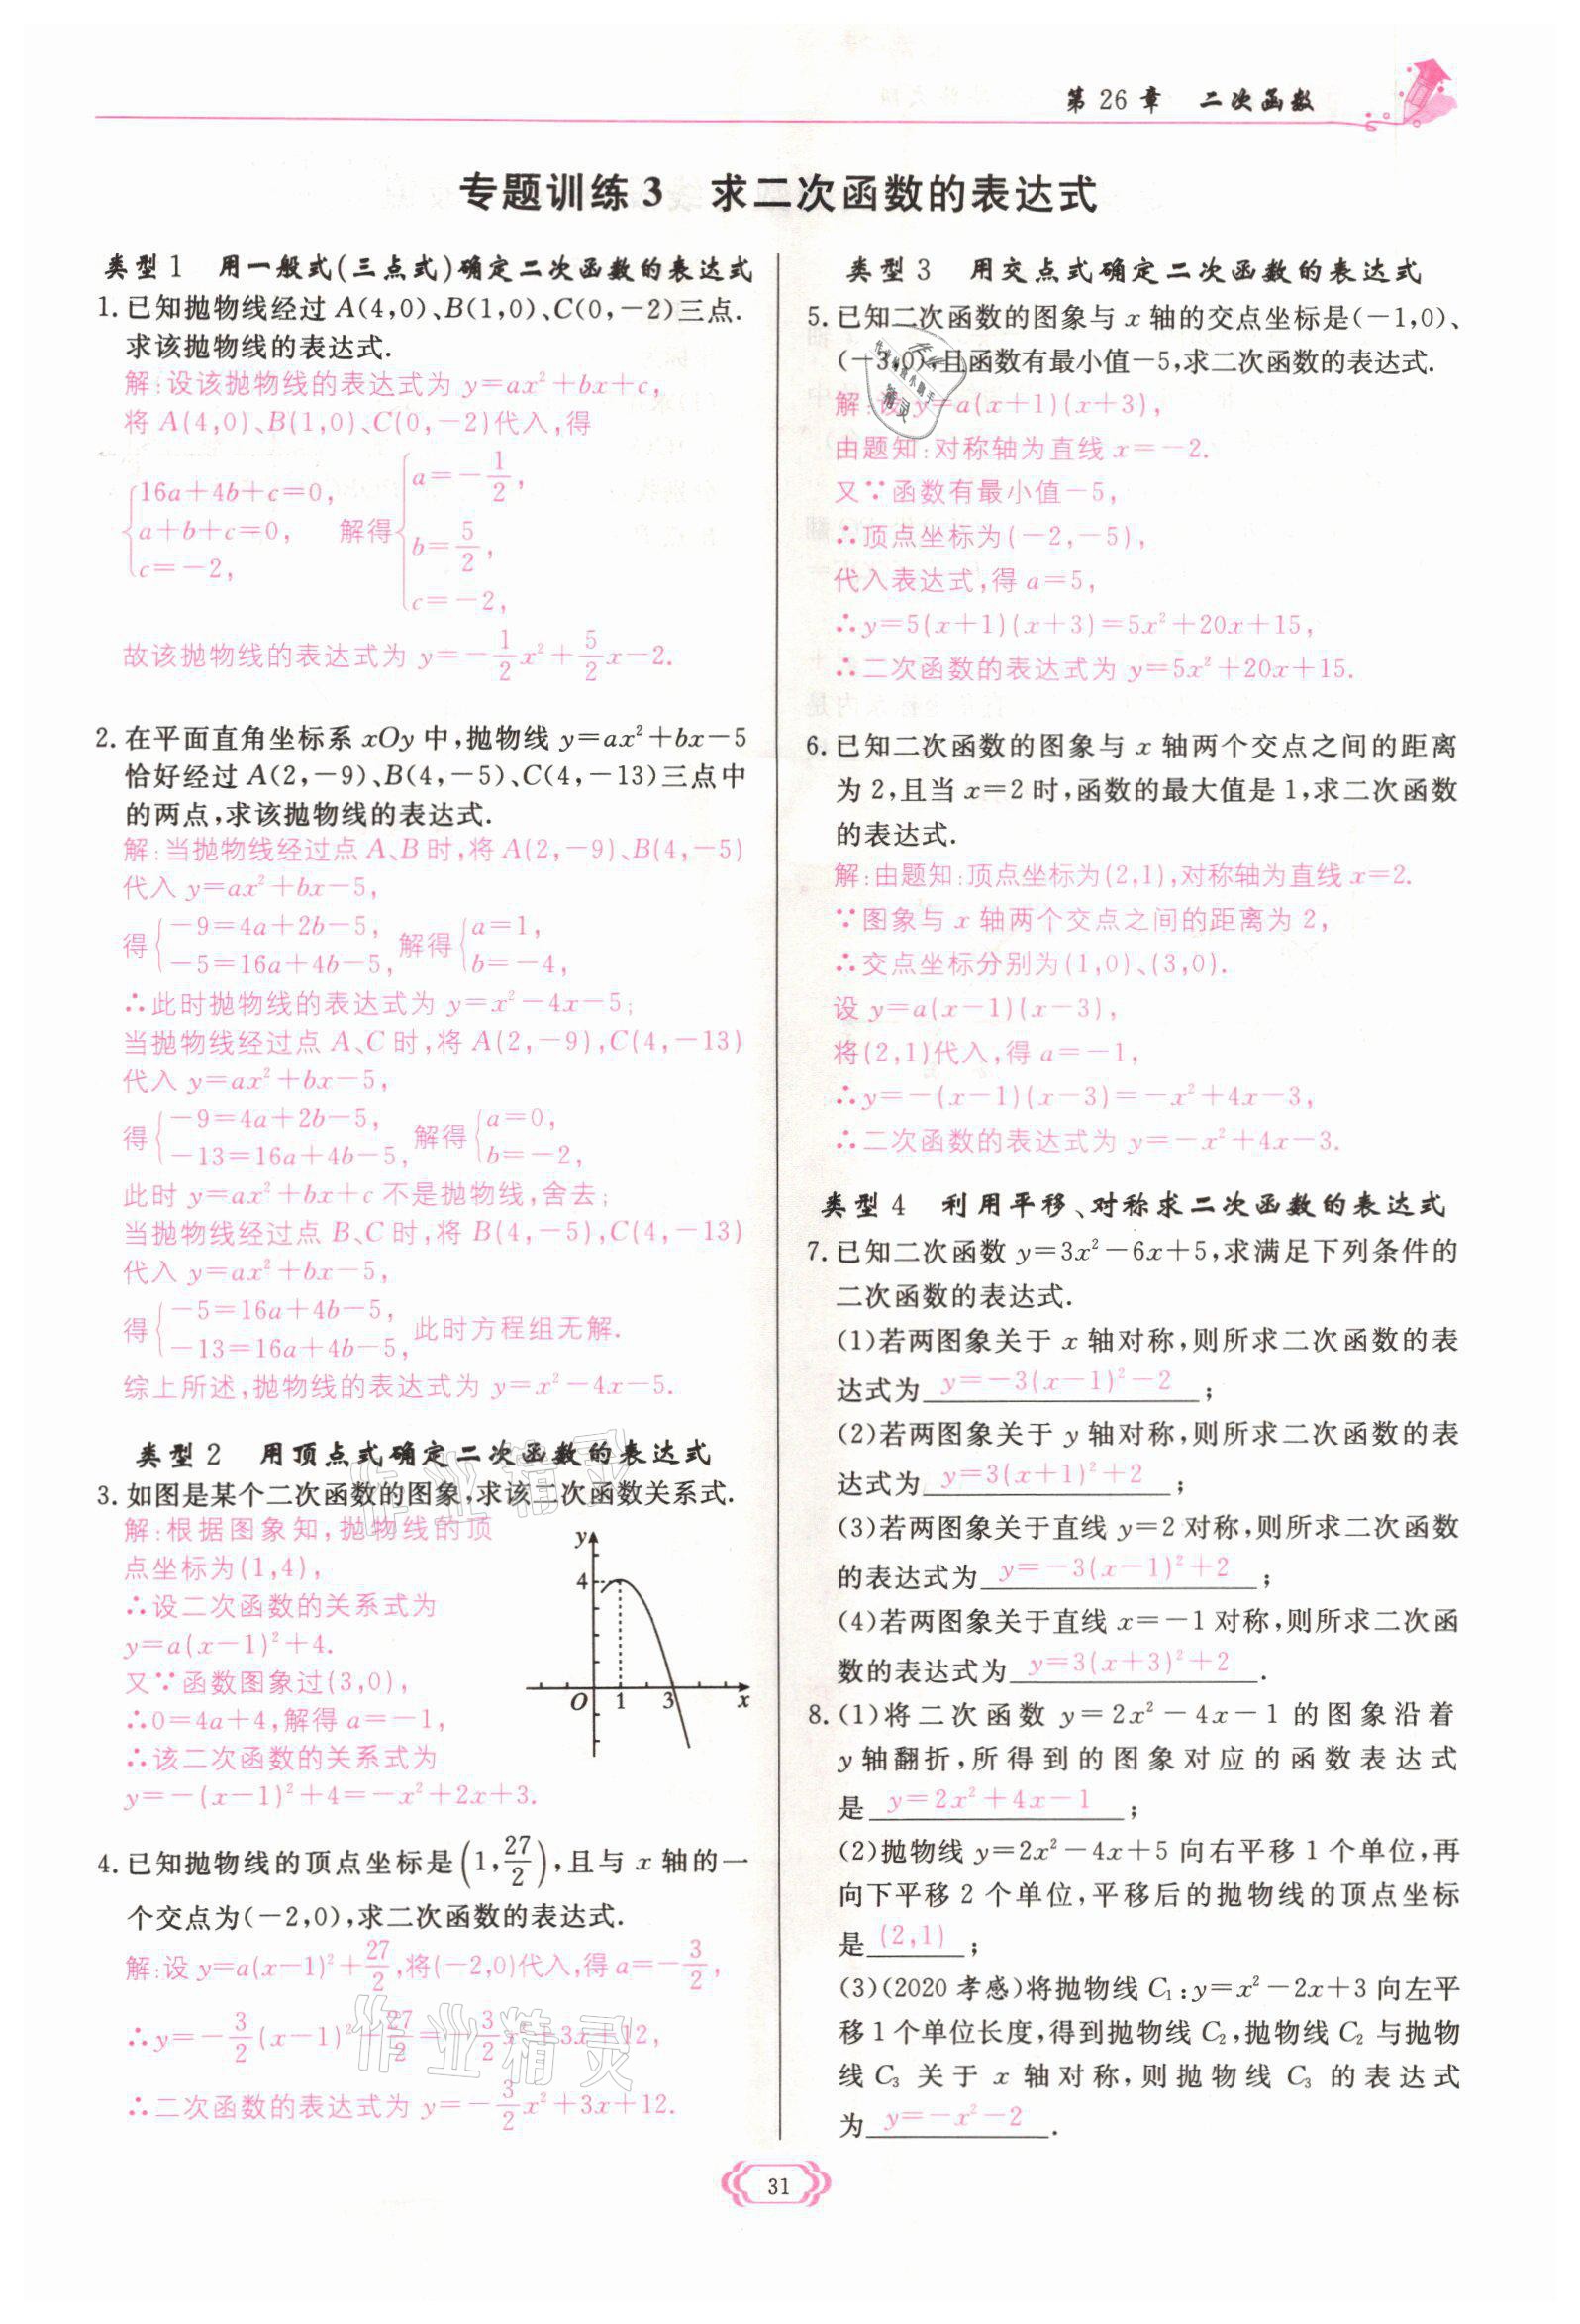 第26章 二次函数
专题训练3 求二次函数的表达式
类型1 用一般式(三点式)确定二次函数的表达式
1. 已知抛物线经过 A(4,0)、B(1,0)、C(0,-2)三点.
求该抛物线的表达式.
解:设该抛物线的表达式为 y=ax²+bx+c,
将 A(4,0)、B(1,0)、C(0,-2)代入,得
{16a+4b+c=0, a+b+c=0, c=-2, 解得 {a=-1/2, b=5/2, c=-2,
故该抛物线的表达式为 y=-1/2x²+5/2x-2.
2. 在平面直角坐标系 xOy 中,抛物线 y=ax²+bx-5
恰好经过 A(2,-9)、B(4,-5)、C(4,-13)三点中
的两点,求该抛物线的表达式.
解:当抛物线经过点 A、B 时,将 A(2,-9)、B(4,-5)
代入 y=ax²+bx-5,
得 {-9=4a+2b-5, -5=16a+4b-5, 解得 {a=1, b=-4,
∴此时抛物线的表达式为 y=x²-4x-5;
当抛物线经过点 A、C 时,将 A(2,-9),C(4,-13)
代入 y=ax²+bx-5,
得 {-9=4a+2b-5, -13=16a+4b-5, 解得 {a=0, b=-2,
此时 y=ax²+bx+c 不是抛物线,舍去;
当抛物线经过点 B、C 时,将 B(4,-5),C(4,-13)
代入 y=ax²+bx-5,
得 {-5=16a+4b-5, -13=16a+4b-5, 此时方程组无解.
综上所述,抛物线的表达式为 y=x²-4x-5.
类型2 用顶点式确定二次函数的表达式
3. 如图是某个二次函数的图象,求该二次函数关系式.
解:根据图象知,抛物线的顶
点坐标为(1,4),
∴设二次函数的关系式为
y=a(x-1)²+4.
又∵函数图象过(3,0),
∴0=4a+4,解得 a=-1,
∴该二次函数的关系式为
y=-(x-1)²+4=-x²+2x+3.
y
4
O 1 3 x
4. 已知抛物线的顶点坐标是(1,27/2),且与 x 轴的一
个交点为(-2,0),求二次函数的表达式.
解:设 y=a(x-1)²+27/2,将(-2,0)代入,得 a=-3/2,
∴y=-3/2(x-1)²+27/2=-3/2x²+3x+12,
∴二次函数的表达式为 y=-3/2x²+3x+12.
类型3 用交点式确定二次函数的表达式
5. 已知二次函数的图象与 x 轴的交点坐标是(-1,0)、
(-3,0),且函数有最小值-5,求二次函数的表达式.
解:设 y=a(x+1)(x+3),
由题知:对称轴为直线 x=-2.
又∵函数有最小值-5,
∴顶点坐标为(-2,-5),
代入表达式,得 a=5,
∴y=5(x+1)(x+3)=5x²+20x+15,
∴二次函数的表达式为 y=5x²+20x+15.
6. 已知二次函数的图象与 x 轴两个交点之间的距离
为 2,且当 x=2 时,函数的最大值是 1,求二次函数
的表达式.
解:由题知:顶点坐标为(2,1),对称轴为直线 x=2.
∵图象与 x 轴两个交点之间的距离为 2,
∴交点坐标分别为(1,0)、(3,0).
设 y=a(x-1)(x-3),
将(2,1)代入,得 a=-1,
∴y=-(x-1)(x-3)=-x²+4x-3,
∴二次函数的表达式为 y=-x²+4x-3.
类型4 利用平移、对称求二次函数的表达式
7. 已知二次函数 y=3x²-6x+5,求满足下列条件的
二次函数的表达式.
(1)若两图象关于 x 轴对称,则所求二次函数的表
达式为 y=-3(x-1)²-2 ;
(2)若两图象关于 y 轴对称,则所求二次函数的表
达式为 y=3(x+1)²+2 ;
(3)若两图象关于直线 y=2 对称,则所求二次函数
的表达式为 y=-3(x-1)²+2 ;
(4)若两图象关于直线 x=-1 对称,则所求二次函
数的表达式为 y=3(x+3)²+2 .
8. (1)将二次函数 y=2x²-4x-1 的图象沿着
y 轴翻折,所得到的图象对应的函数表达式
是 y=2x²+4x-1 ;
(2)抛物线 y=2x²-4x+5 向右平移 1 个单位,再
向下平移 2 个单位,平移后的抛物线的顶点坐标
是 (2,1) ;
(3)(2020 孝感)将抛物线 C₁:y=x²-2x+3 向左平
移 1 个单位长度,得到抛物线 C₂,抛物线 C₂ 与抛物
线 C₃ 关于 x 轴对称,则抛物线 C₃ 的表达式
为 y=-x²-2 .
31
作业精灵
作业精灵